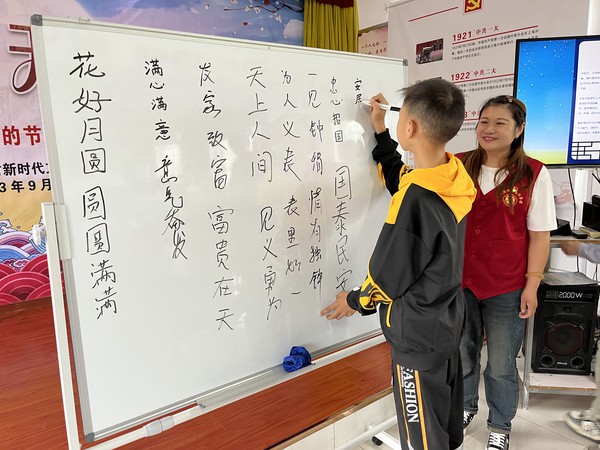 花好月圆 圆圆满满
满心满意 意气奋发
发家致富 富贵在天
天上人间 见义勇为
为人义表 表里如一
一见钟情 情有独钟
忠心报国 国泰民安
安居
的节
新时代
3年9月
1921 中共一大
1922 中共二大
FASHION
2000W